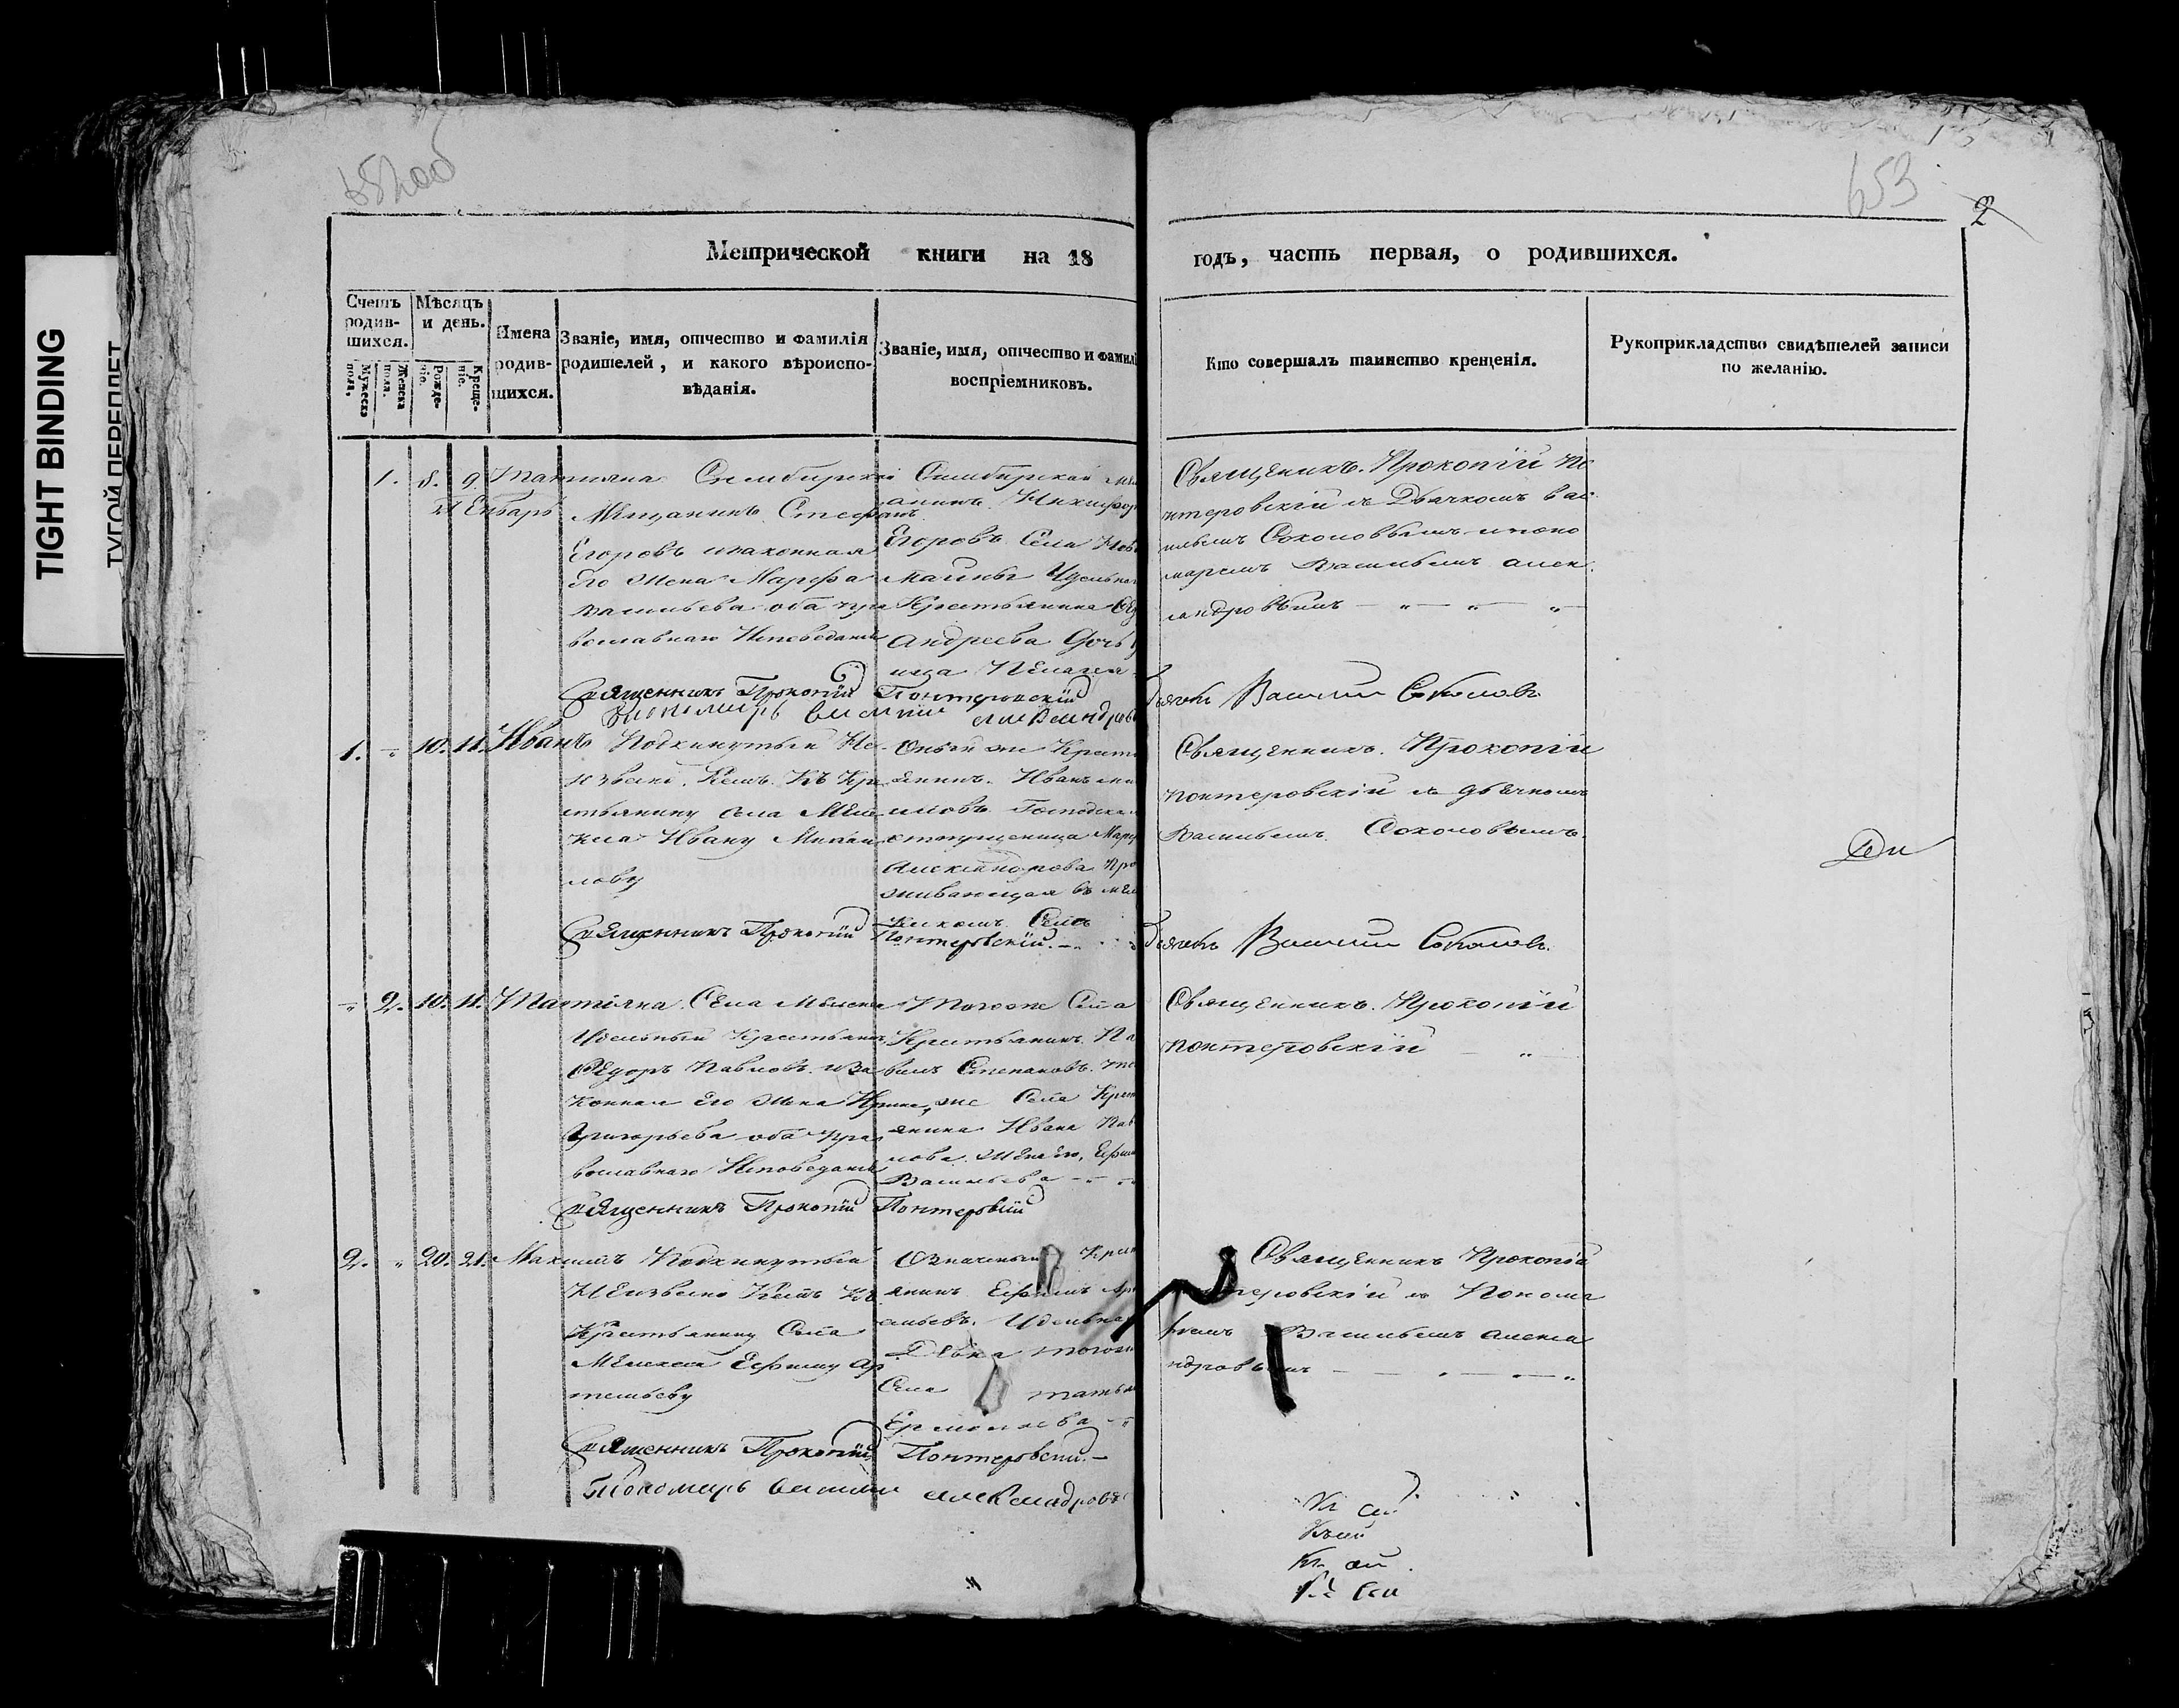 TIGHT BINDING
ТУГОЙ ПЕРЕПЛЕТ
652об
653
2
Метрической книги на 18
годъ, часть первая, о родившихся.
Счетъ родив-шихся.
Мужеска пола.
Женска пола.
Мѣсяцъ и день.
Рожде-ніе.
Креще-ніе.
Имена родив-шихся.
Званіе, имя, отчество и фамилія
родителей, и какого вѣроиспо-
вѣданія.
Званіе, имя, отчество и фамилі
воспріемниковъ.
Кто совершалъ таинство крещенія.
Рукоприкладство свидѣтелей записи
по желанію.
1. 8. 9. Татіяна
Генварь
Симбирскі
Мѣщанинъ Стефанъ
Егоровъ изаконная
его жена Марѳа
васильева оба пра
вославнаго Исповеданія
Симбирской мѣ
анинъ Никифор
Егоровъ Села Нов
маины Удельнаг
Крестьянина Ѳе
андреева дочь
ица Пелагея
Священникъ. Прокопій По
нтеровскій съ Дьячкомъ Вас
ильемъ Соколовымъ ипоно
маремъ Васильемъ алек
сандровымъ
Священникъ Прокопій Понтеровскій
Дьячекъ Василій Соколовъ
Пономарь василий александровъ
1. 10. 11. Иванъ
Подкинутый Не
извѣсно. Кемъ. Къ Кре
стьянину села Меле
кеса Ивану Михаи
лову
Оный же Крест
янинъ. Иванъ ми
иловъ Господска
отпущеница Мар
Александрова про
живающая въ мел
кескомъ Селѣ
Священникъ. Прокопій
понтеровскій съ дьячкомъ
Васильемъ. Соколовымъ.
Священникъ Прокопій Понтеровскій.
Дьячекъ Василій Соколовъ.
2. 10. 11. Татіяна.
Села Мелекеса
Удельный Крестьянинъ
Ѳедоръ Павловъ. иза
конная его жена Ирина
Григорьева оба пра
вославнаго Исповеданія
Тогоже Села
Крестьянинъ. Па
велъ Степановъ. то
же Села Крест
янина Ивана Пав
лова. жена его,
Васильева
Священникъ. Прокопій
понтеровскій
Священникъ Прокопій Понтеровскій
2. 20. 21. Максимъ
Подкинутый
Неизвесно Кемъ Къ
Крестьянину Села
Мелекеса Ефиму Ар
темьеву
Означеный Крест
янинъ Ефимъ Арт
емьевъ. Удельная
Девка тогож
Села татья
Ермолаева
Священникъ Прокопій
теровскій съ Понома
ремъ Васильемъ алекса
ндровымъ
Священникъ Прокопій Понтеровскій.
Пономарь василий александровъ